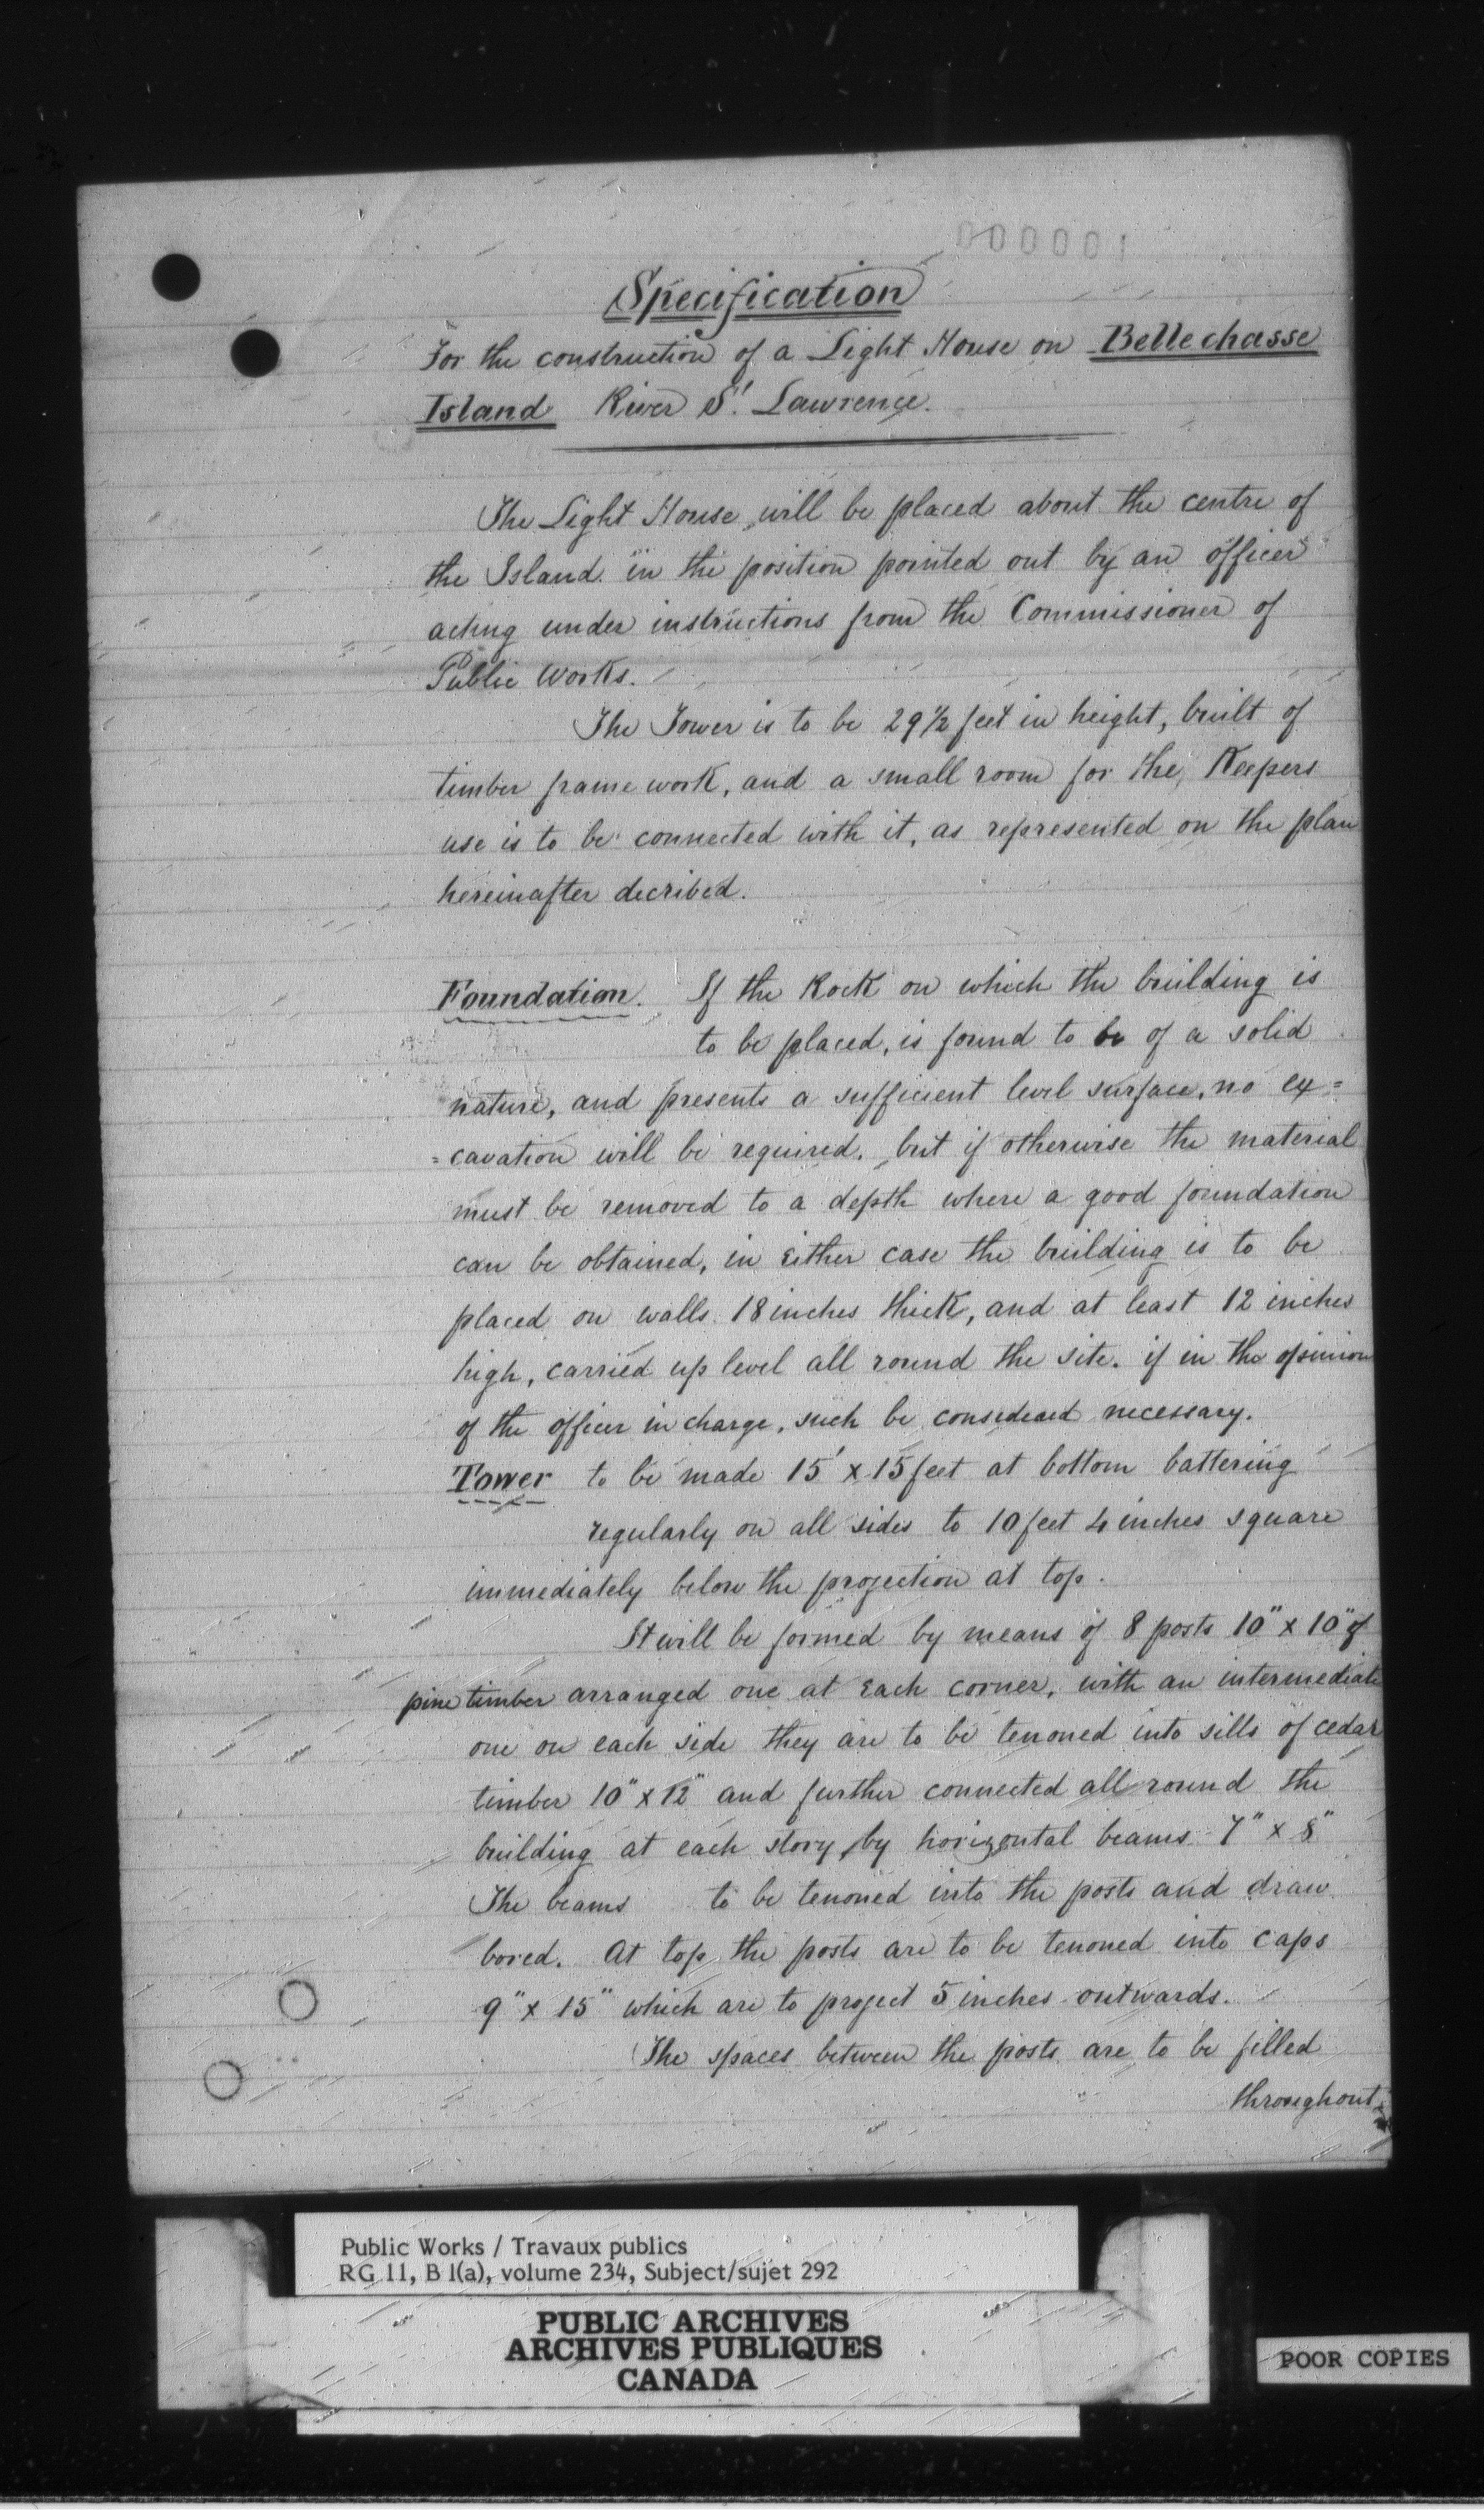 000001
Specification
For the construction of a Light House on Bellechasse
Island River St. Lawrence.
The Light House, will be placed about the centre of
the Island. in the position pointed out by an officer
acting under instructions from the Commissioner of
Public Works.
The Tower is to be 29 1/2 feet in height, built of
timber frame work, and a small room for the Keepers
use is to be connected with it, as represented on the plan
hereinafter decribed.
Foundation. If the Rock on which the building is
to be placed, is found to be of a solid
nature, and presents a sufficient level surface, no ex=
=cavation will be required. but if otherwise the material
must be removed to a depth where a good foundation
can be obtained, in either case the building is to be
placed on walls 18 inches thick, and at least 12 inches
high, carried up level all round the site. if in the opinion
of the officer in charge, such be considered necessary.
Tower to be made 15' x 15 feet at bottom battering
regularly on all sides to 10 feet 4 inches square
immediately below the projection at top.
It will be formed by means of 8 posts 10" x 10" of
pine timber arranged one at each corner, with an intermediate
one on each side they are to be tenoned into sills of cedar
timber 10" x 12" and further connected all round the
building at each story, by horizontal beams 7" x 8"
The beams to be tenoned into the posts and draw
bored. At top the posts are to be tenoned into caps
9" x 15" which are to project 5 inches outwards.
The spaces between the posts are to be filled
throughout
Public Works / Travaux publics
RG 11, B 1(a), volume 234, Subject/sujet 292
PUBLIC ARCHIVES
ARCHIVES PUBLIQUES
CANADA
POOR COPIES